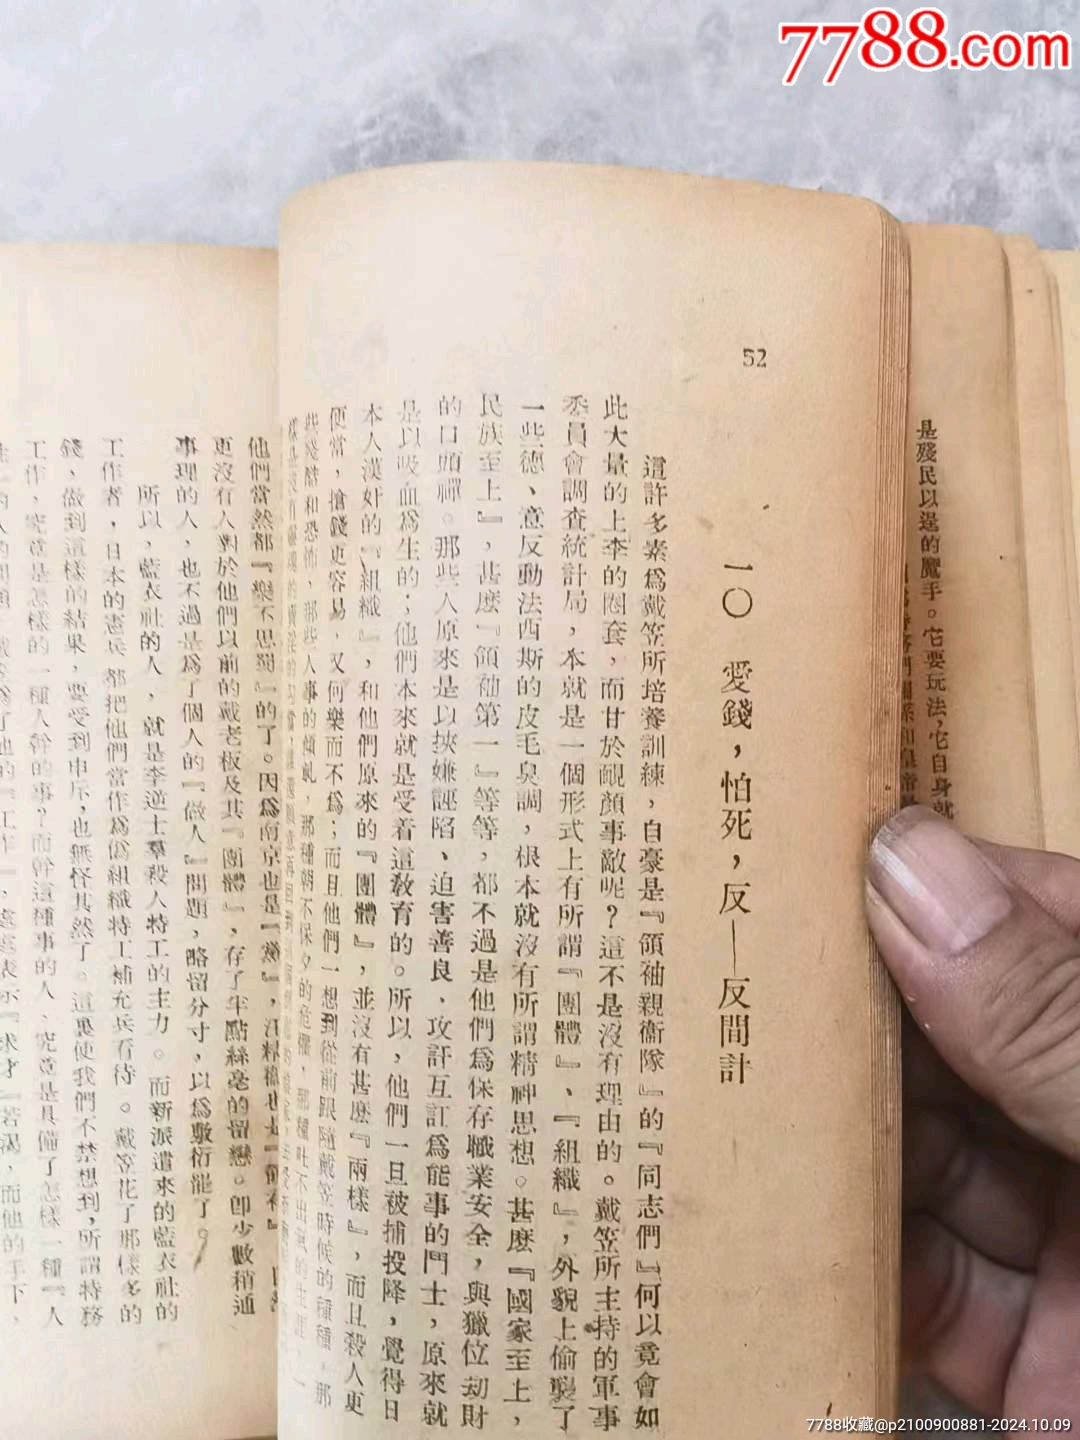 7788.com
是殘民以逞的魔手。它要玩法，它自身就
52
一〇　愛錢，怕死，反—反間計
這許多素為戴笠所培養訓練，自豪是『領袖親衞隊』的『同志們』何以竟會如
此大量的上李的圈套，而甘於靦顏事敵呢？這不是沒有理由的。戴笠所主持的軍事
委員會調查統計局，本就是一個形式上有所謂『團體』、『組織』，外貌上偷襲了
一些德、意反動法西斯的皮毛臭調，根本就沒有所謂精神思想。甚麼『國家至上，
民族至上』，甚麼『領袖第一』等等，都不過是他們為保存職業安全，與獵位刼財
的口頭禪。那些人原來是以挾嫌誣陷、迫害善良，攻訐互訌為能事的鬥士，原來就
是以吸血為生的；他們本來就是受着這敎育的。所以，他們一旦被捕投降，覺得日
本人漢奸的『組織』，和他們原來的『團體』，並沒有甚麼『兩樣』，而且殺人更
便當，搶錢更容易，又何樂而不為；而且他們一想到從前跟隨戴笠時候的種種，那
些殘酷和恐怖，那些人事的傾軋，那種朝不保夕的危懼，那種吐不出氣的生涯，
他們當然都『樂不思蜀』的了。因為南京也是『黨』，汪精衞也是『領袖』
更沒有人對於他們以前的戴老板及其『團體』，存了半點絲毫的留戀。卽少數稍通
事理的人，也不過是為了個人的『做人』問題，略留分寸，以為敷衍罷了。
所以，藍衣社的人，就是李逆士羣殺人特工的主力。而新派遣來的藍衣社的
工作者，日本的憲兵都把他們當作為偽組織特工補充兵看待。戴笠花了那樣多的
錢，做到這樣的結果，要受到申斥，也無怪其然了。這裏使我們不禁想到，所謂特務
工作，究竟是怎樣的一種人幹的事？而幹這種事的人，究竟是具備了怎樣一種『人
的『工作』，處處表示『求才』若渴，而他的手下，
7788收藏@p2100900881-2024.10.09